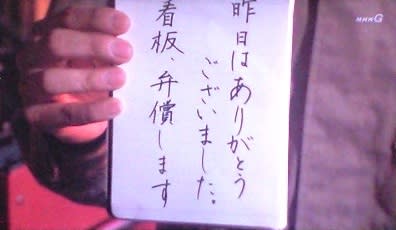 昨日はありがとう
ございました。
看板、弁償します
NHKG